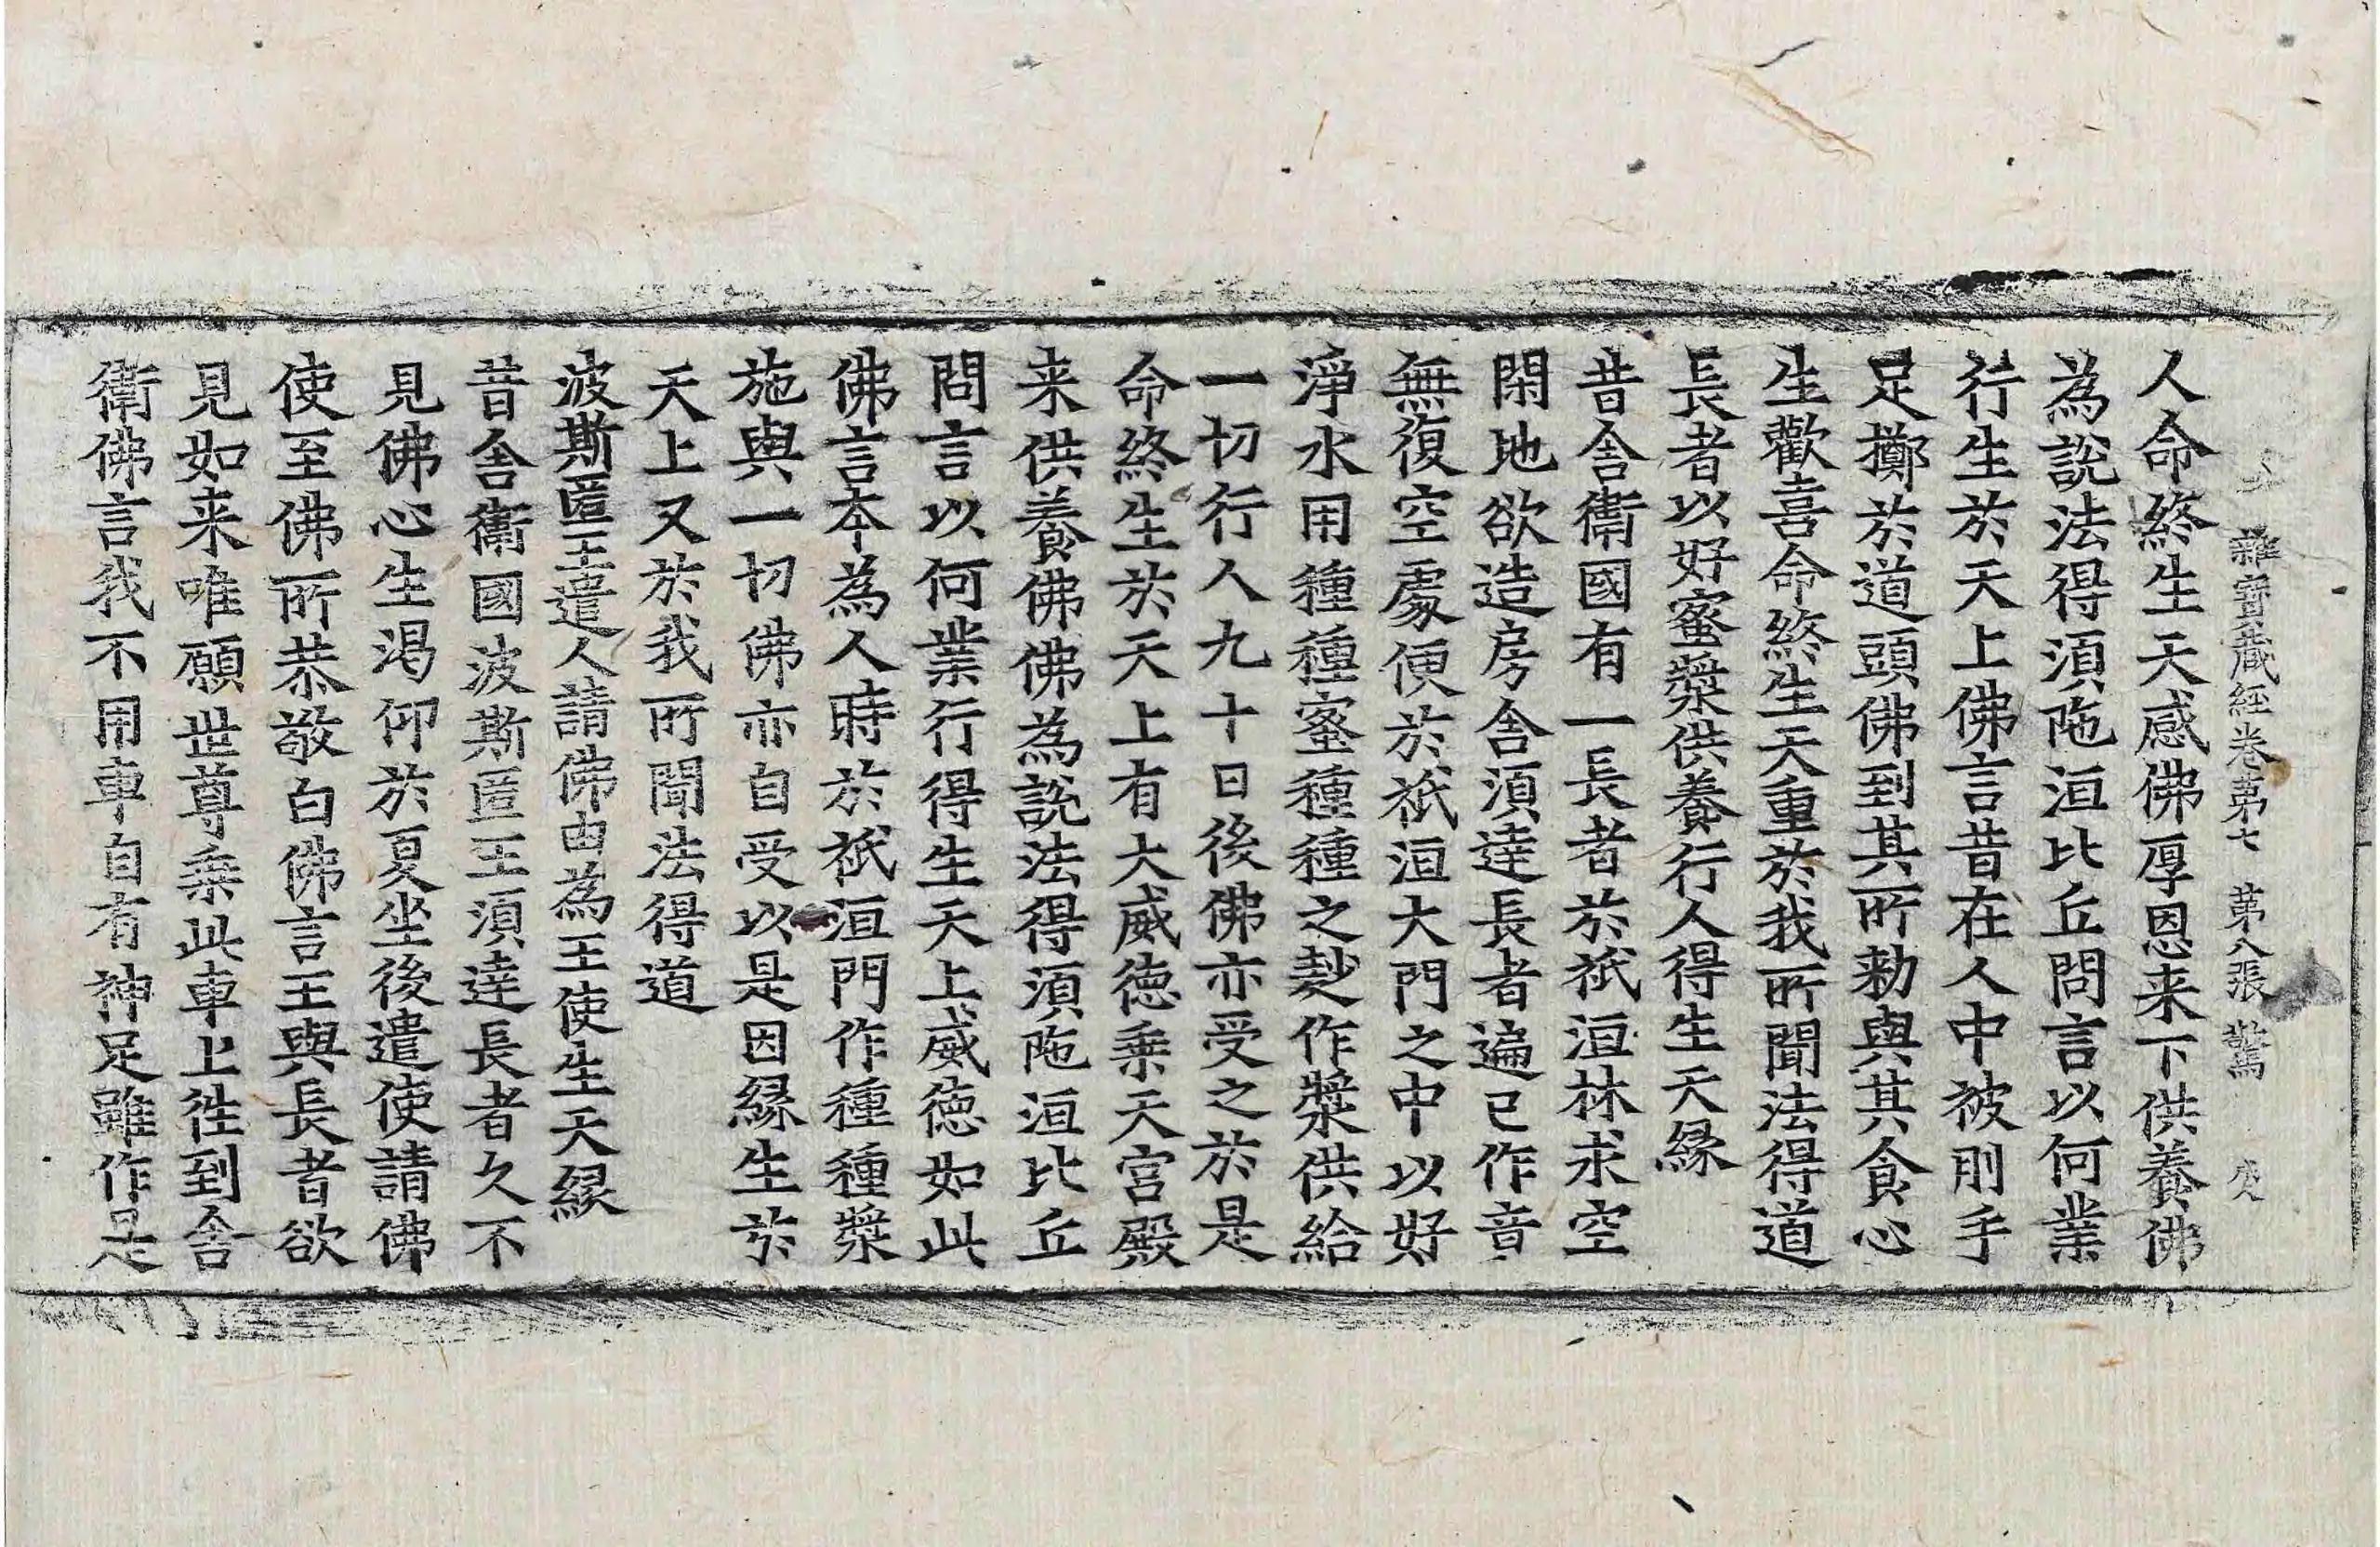 雜寶藏經卷第七 第八張 驚
人命終生天感佛厚恩来下供養佛
為說法得湏陁洹比丘問言以何業
行生於天上佛言昔在人中被刖手
足擲於道頭佛到其所勑與其食心
生歡喜命終生天重於我所聞法得道
長者以好蜜漿供養行人得生天縁
昔舍衛國有一長者於祇洹林求空
閑地欲造房舍湏達長者遍已作音
無復空處便於祇洹大門之中以好
淨水用種種蜜種種之麨作漿供給
一切行人九十日後佛亦受之於是
命終生於天上有大威徳乗天宫殿
来供養佛佛為說法得湏陁洹比丘
問言以何業行得生天上威徳如此
佛言本為人時於祇洹門作種種漿
施與一切佛亦自受以是因縁生於
天上又於我所聞法得道
波斯匿王遣人請佛由為王使生天縁
昔舍衛國波斯匿王湏達長者久不
見佛心生渇仰於夏坐後遣使請佛
使至佛所恭敬白佛言王與長者欲
見如来唯願世尊乗此車上徃到舍
衛佛言我不用車自有神足雖作是